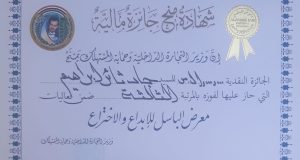 شهادة منح جائزة مالية
إن وزير التجارة الداخلية وحماية المستهلك يمنح
الجائزة النقدية للسيد
التي حاز عليها لفوزه بالمرتبة الثالثة ضمن فعاليات
معرض الباسل للإبداع والاختراع
وزير التجارة الداخلية وحماية المستهلك